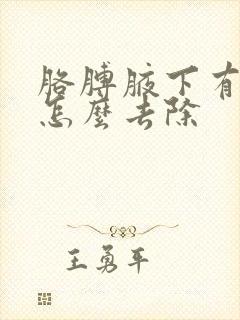 胳膊腋下有
怎麼去除
王勇平